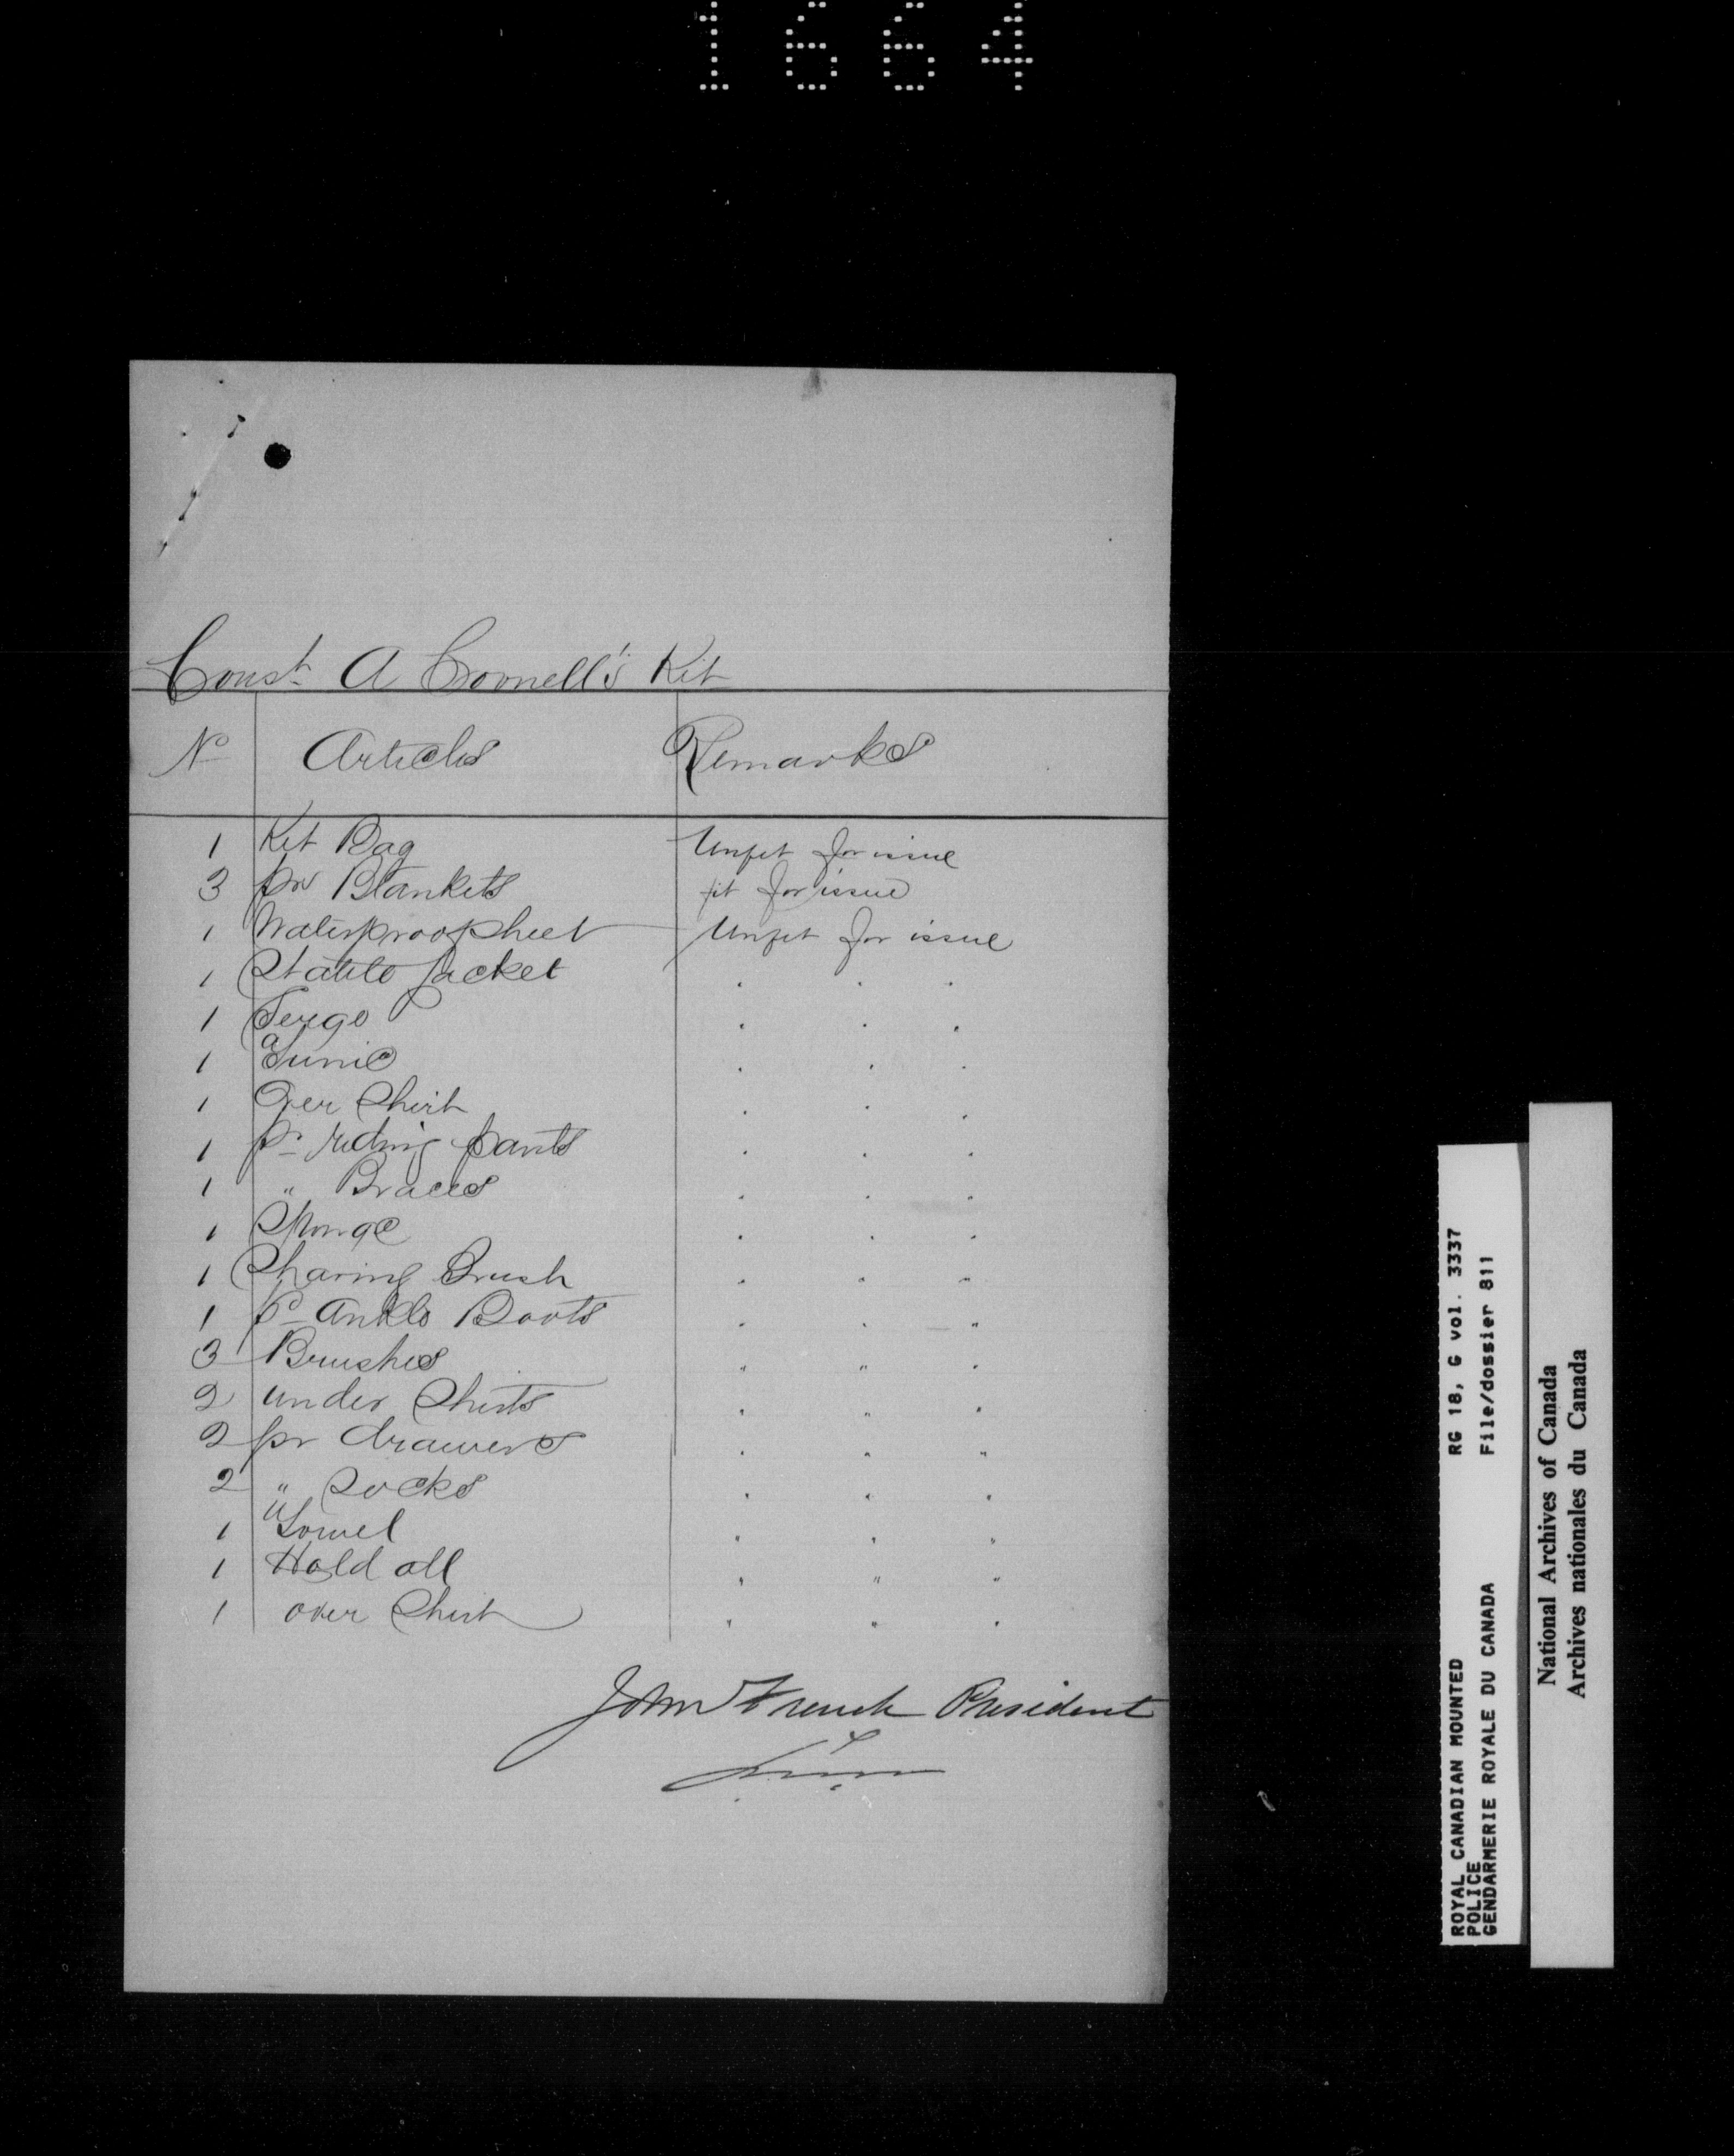 1664
Const A Connell's Kit
No Articles Remarks
1 Kit Bag Unfit for issue
3 pr Blankets fit for issue
1 Waterproof sheet Unfit for issue
1 Stable Jacket . . .
1 Serge . . .
1 Tunic . . .
1 Over Shirt . . .
1 pr riding pants . . .
1 " Braces . . .
1 Sponge . . .
1 Shaving Brush . . "
1 pr Ankle Boots . . "
3 Brushes " " .
2 under Shirts . " .
2 pr drawers . " "
2 " Socks . " .
1 Towel . . "
1 Hold all . " "
1 over Shirt . " .
John French President
Insp
ROYAL CANADIAN MOUNTED RG 18, G vol. 3337
POLICE
GENDARMERIE ROYALE DU CANADA File/dossier 811
National Archives of Canada
Archives nationales du Canada